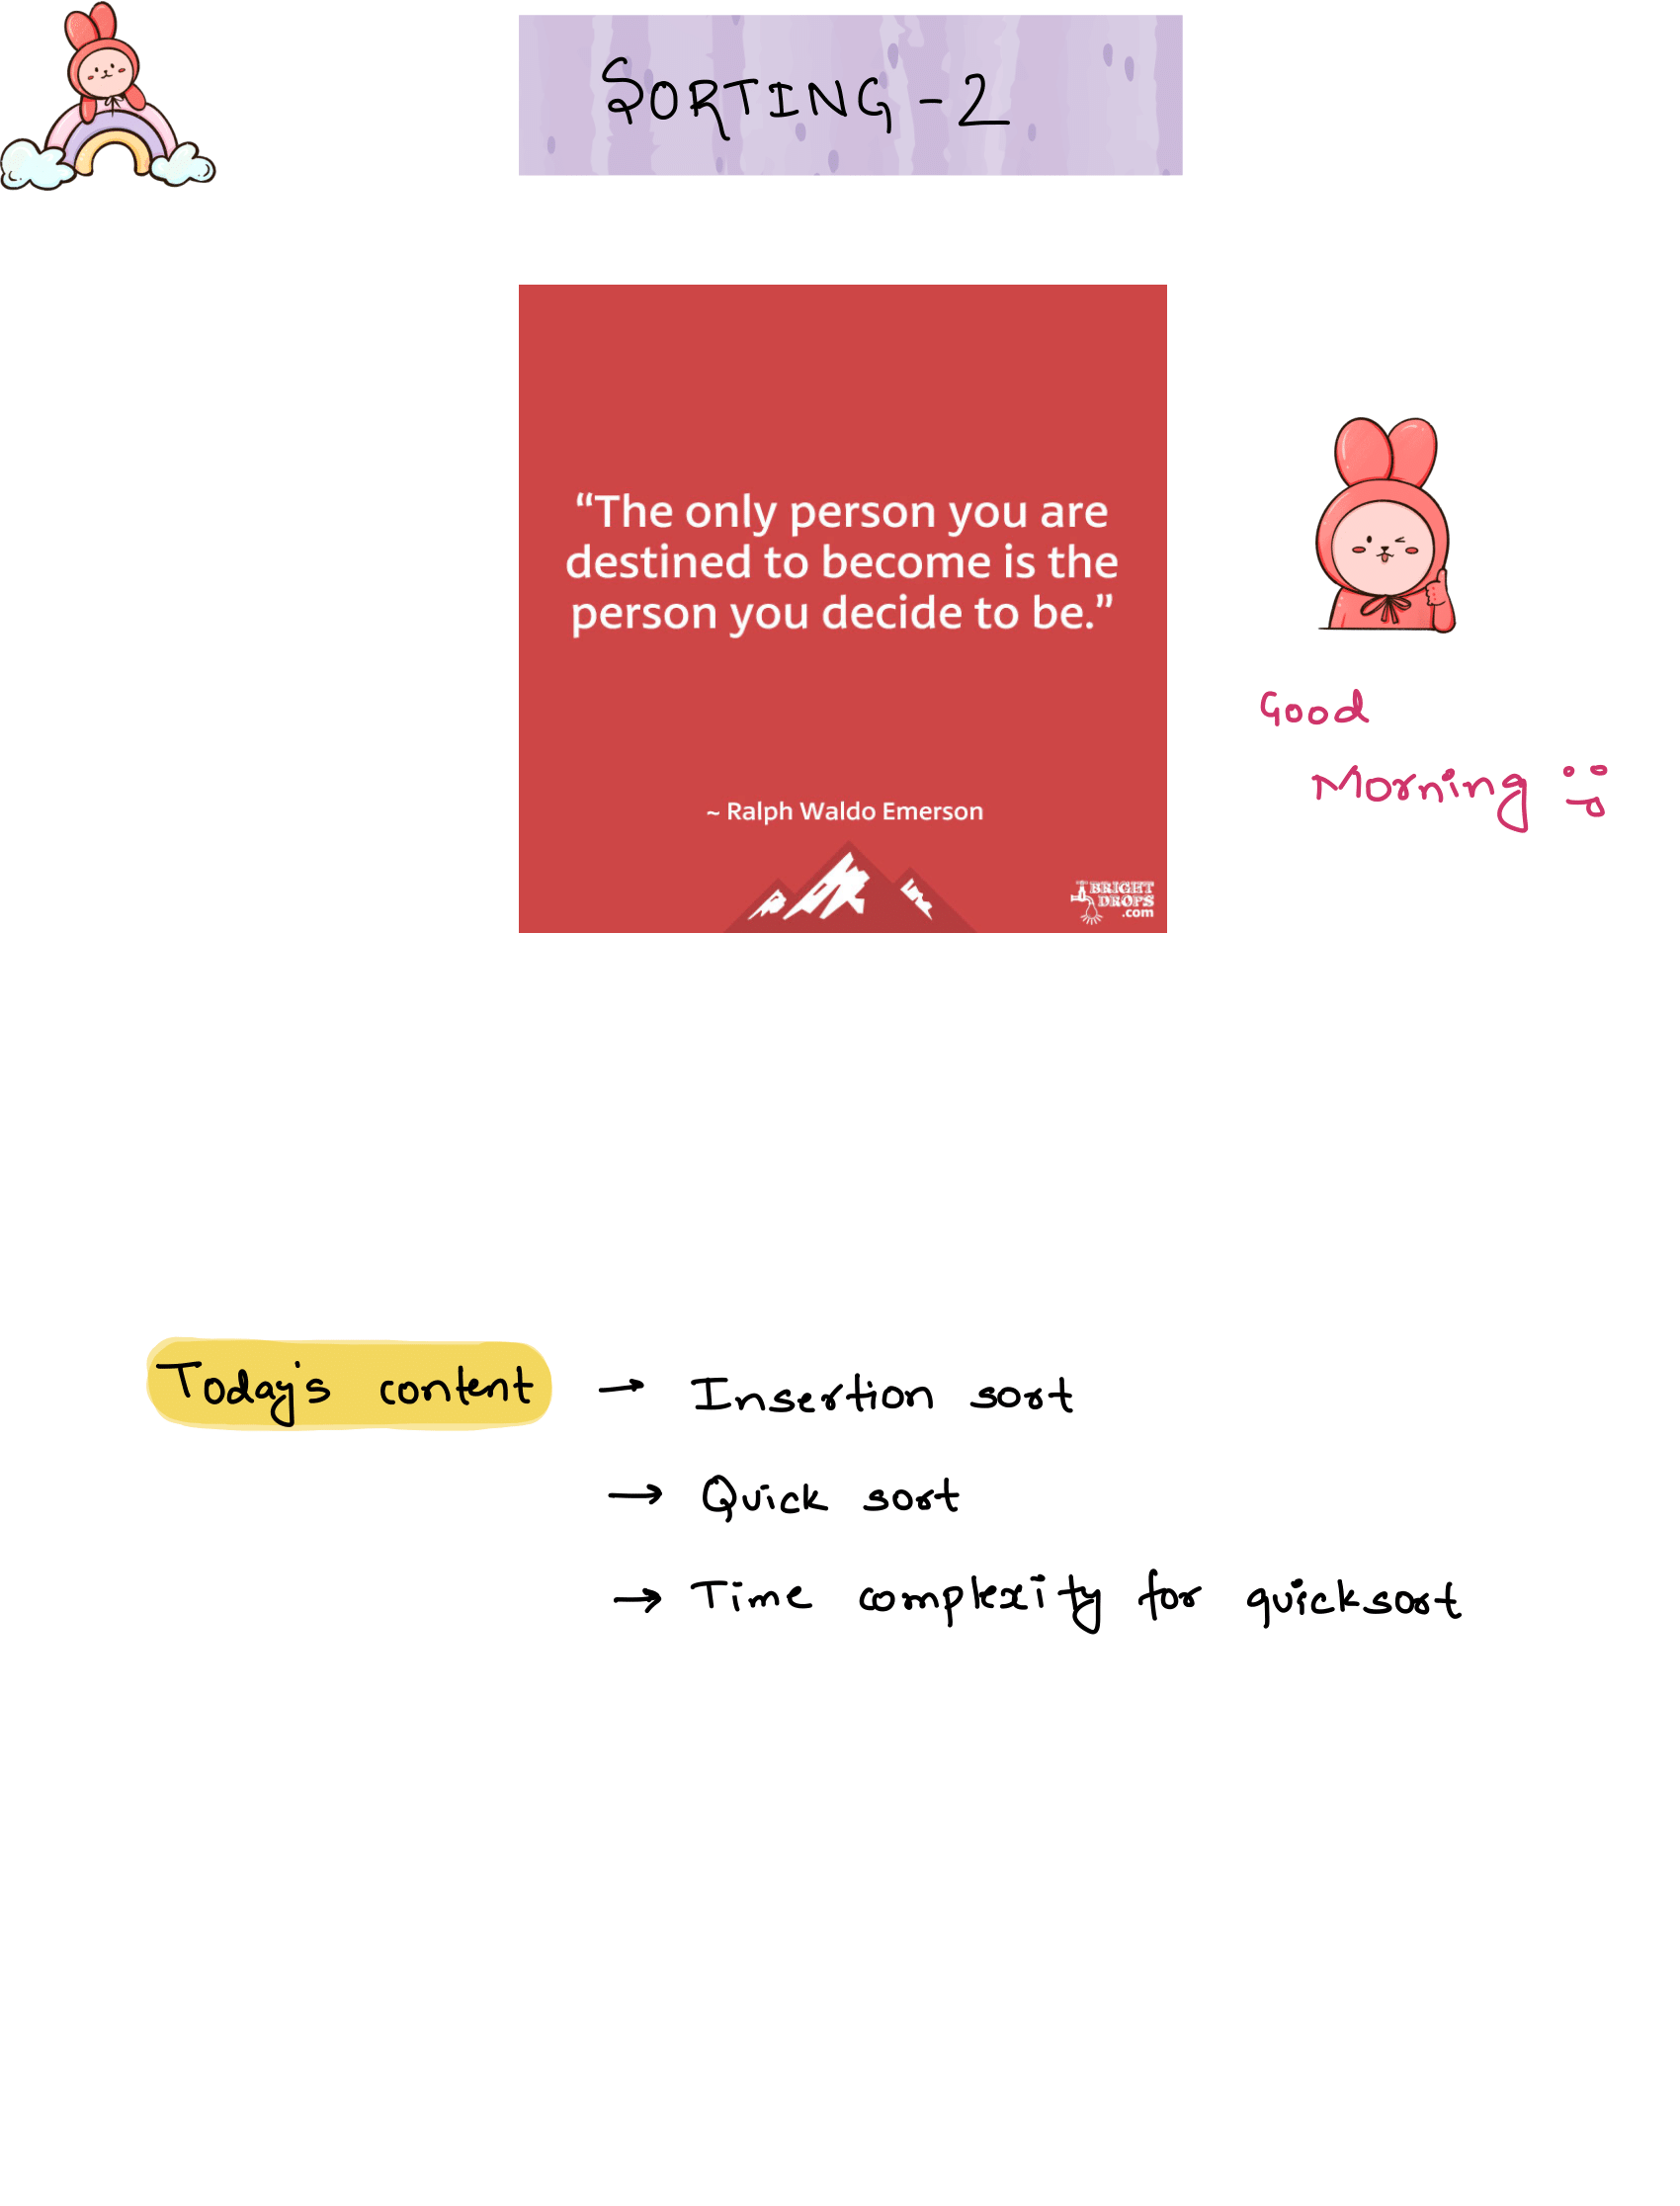 SORTING - 2
“The only person you are
destined to become is the
person you decide to be.”
~ Ralph Waldo Emerson
BRIGHT
DROPS
.com
Good
Morning :)
Today's content → Insertion sort
→ Quick sort
→ Time complexity for quicksort